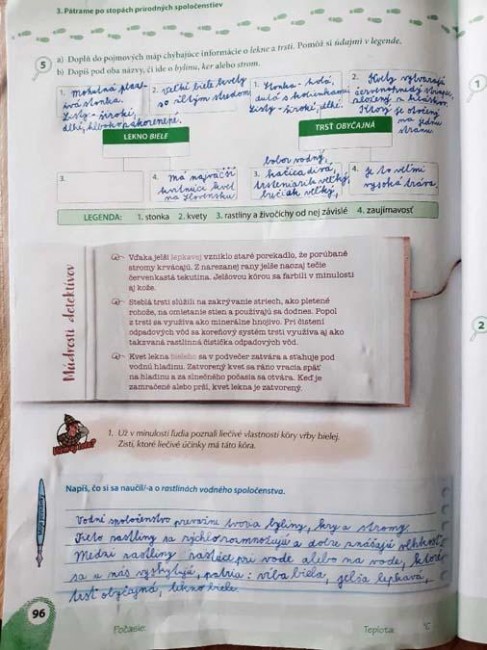 3. Pátrame po stopách prírodných spoločenstiev
5
a) Doplň do pojmových máp chýbajúce informácie o lekne a trsti. Pomôž si údajmi v legende.
b) Dopíš pod oba názvy, či ide o bylinu, ker alebo strom.
1. Mohutná plaza-
vá stonka.
Listy - široké,
dlhé, hlboko zakorenené.
2. Veľké biele kvety
so žltým stredom
1. Stonka - holá,
dutá s kolienkami
Listy - široké, dlhé.
2. Kvety vytvárajú
červenohnedý strapec,
zložený z kláskov.
Ktorý je otočený
na jednu
stranu.
LEKNO BIELE
TRSŤ OBYČAJNÁ
3.
4. Má najväčší
kvet
na Slovensku.
bobor vodný,
3. kačica divá,
trsteniarik veľký,
bučiak veľký,
4. Je to veľmi
vysoká tráva.
LEGENDA: 1. stonka 2. kvety 3. rastliny a živočíchy od nej závislé 4. zaujímavosť
1
Múdrosti detektívov
Vďaka jelši lepkavej vzniklo staré porekadlo, že porúbané
stromy krvácajú. Z narezanej rany jelše naozaj tečie
červenkastá tekutina. Jelšovou kôrou sa farbili v minulosti
aj kože.
Steblá trsti slúžili na zakrývanie striech, ako pletené
rohože, na omietanie stien a používajú sa dodnes. Popol
z trsti sa využíva ako minerálne hnojivo. Pri čistení
odpadových vôd sa koreňový systém trsti využíva aj ako
takzvaná rastlinná čistička odpadových vôd.
Kvet lekna bieleho sa v podvečer zatvára a sťahuje pod
vodnú hladinu. Zatvorený kvet sa ráno vracia späť
na hladinu a za slnečného počasia sa otvára. Keď je
zamračené alebo prší, kvet lekna je zatvorený.
2
1. Už v minulosti ľudia poznali liečivé vlastnosti kôry vŕby bielej.
Zisti, ktoré liečivé účinky má táto kôra.
Napíš, čo si sa naučil/-a o rastlinách vodného spoločenstva.
Vodné spoločenstvo prevažne tvoria byliny, kry a stromy.
Tieto rastliny sa rýchlo rozmnožujú a dobre znášajú vlhkosť.
Medzi rastliny rastúce pri vode alebo na vode, ktoré
sa u nás vyskytujú, patria: vŕba biela, jelša lepkavá,
trsť obyčajná, lekno biele.
96
Počasie:
Teplota: °C